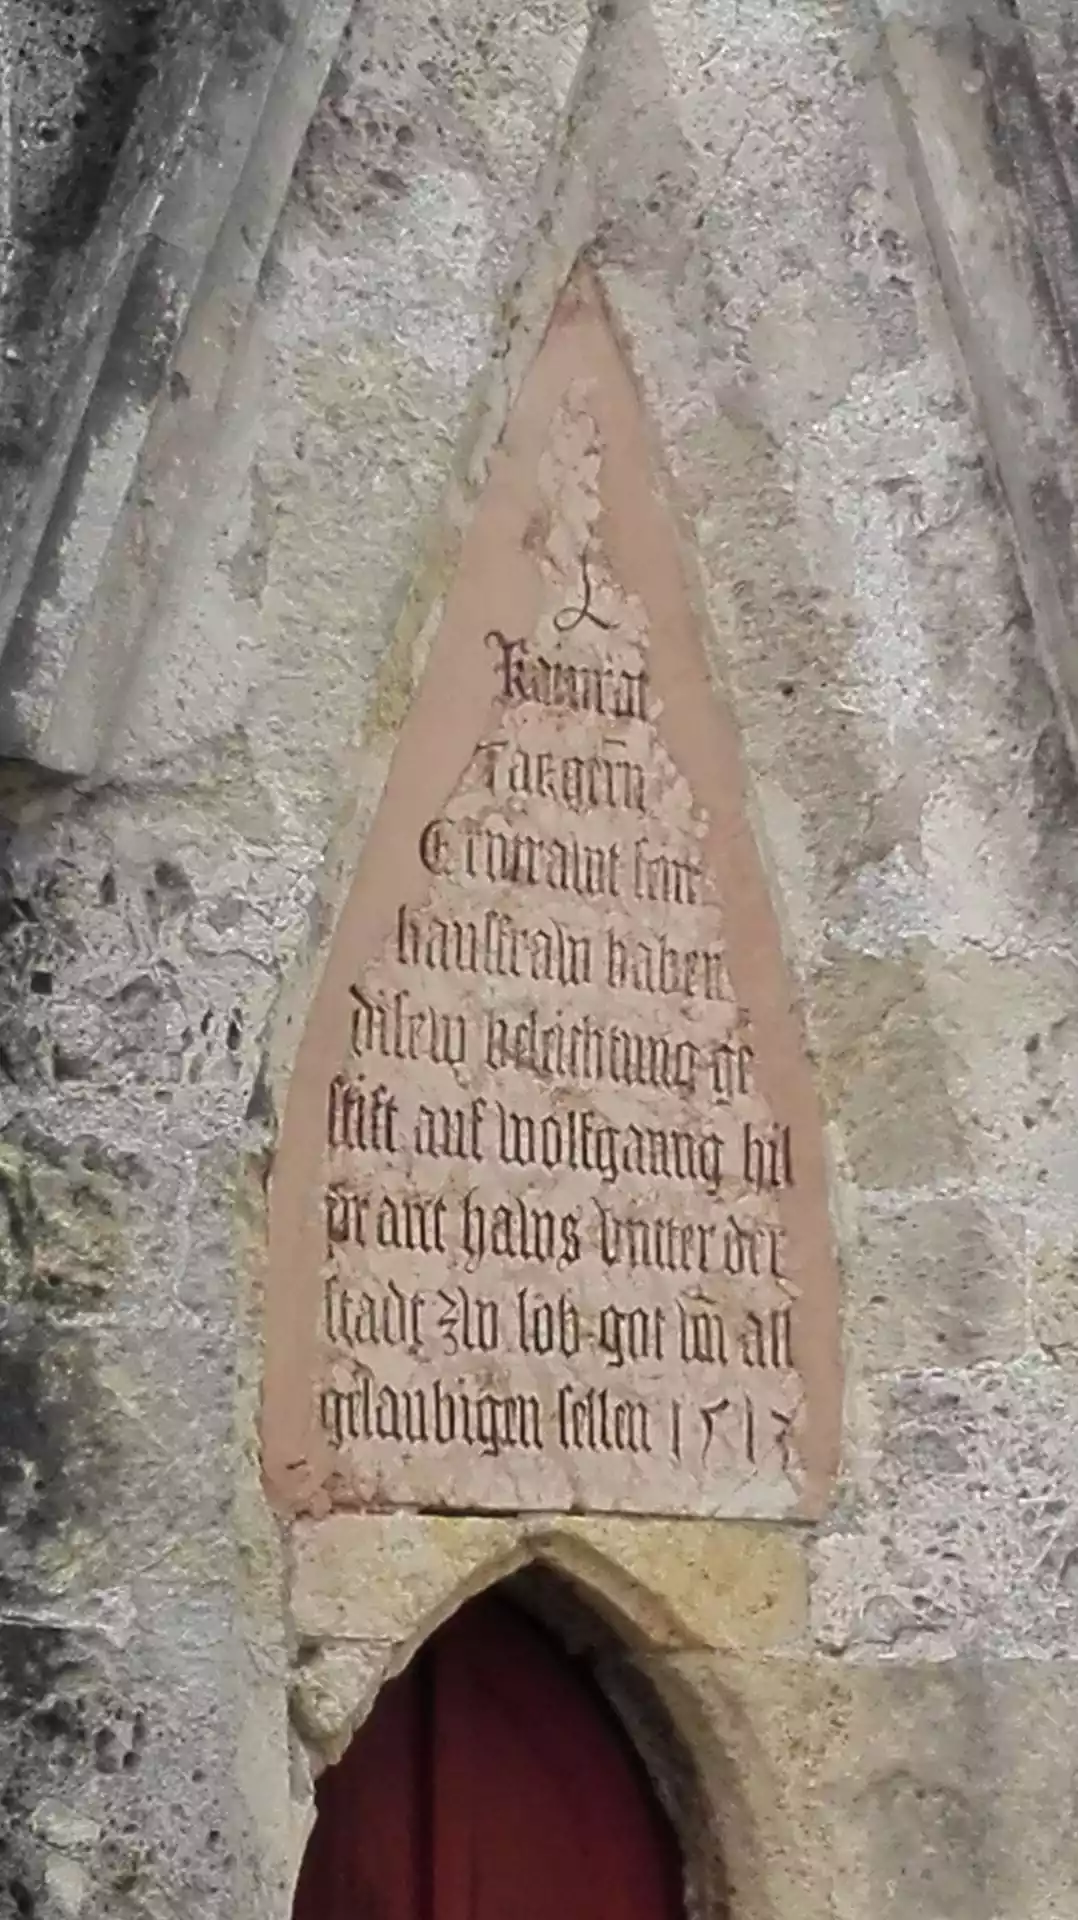 L
Kainrat
Targein
Erntrawt sein
hausfraw haben
disew beleichtung ge
stift auf wolfganng hil
prant haws vntter der
stadt zw lob got vn̄ all
gelaubigen sellen 1513